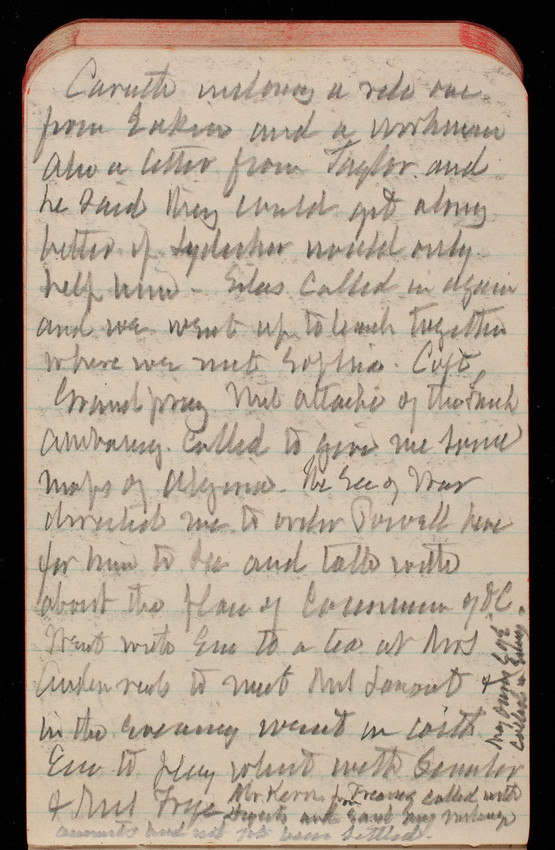 Caruth inclosing a
from Eakins and a workman
also a letter from Taylor and
he said they could get along
better if Lydecker would only
help him - Silas called in again
and we went up to lunch together
where we met Sophia. Capt.
Grandprey Mil attaché of the French
Embassy called to give me some
maps of Algeria. The Sec of War
directed me to order Powell here
for him to see and talk with
about the place of Commr of D.C.
Went with Em to a tea at Mrs
to meet Mrs Lamont &
in the evening went in with
Em to play whist with Senator
& Mrs Frye Mr Kern from Treasy called with
and said my mileage
accounts had not yet been settled.
Maj Davis
called in Evng.